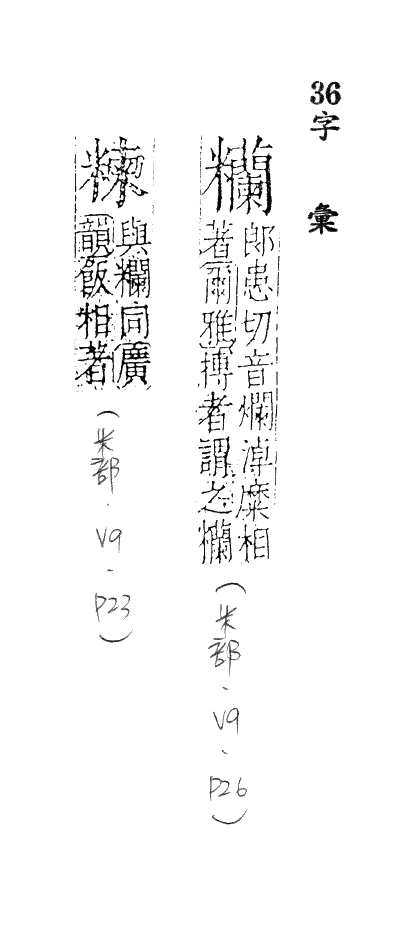 36字彙
糷
郎患切音爛淖糜相
著爾雅摶者謂之糷
(米部、V9、P26)
與糷同廣
韻飯相著
(米部、V9、P23)